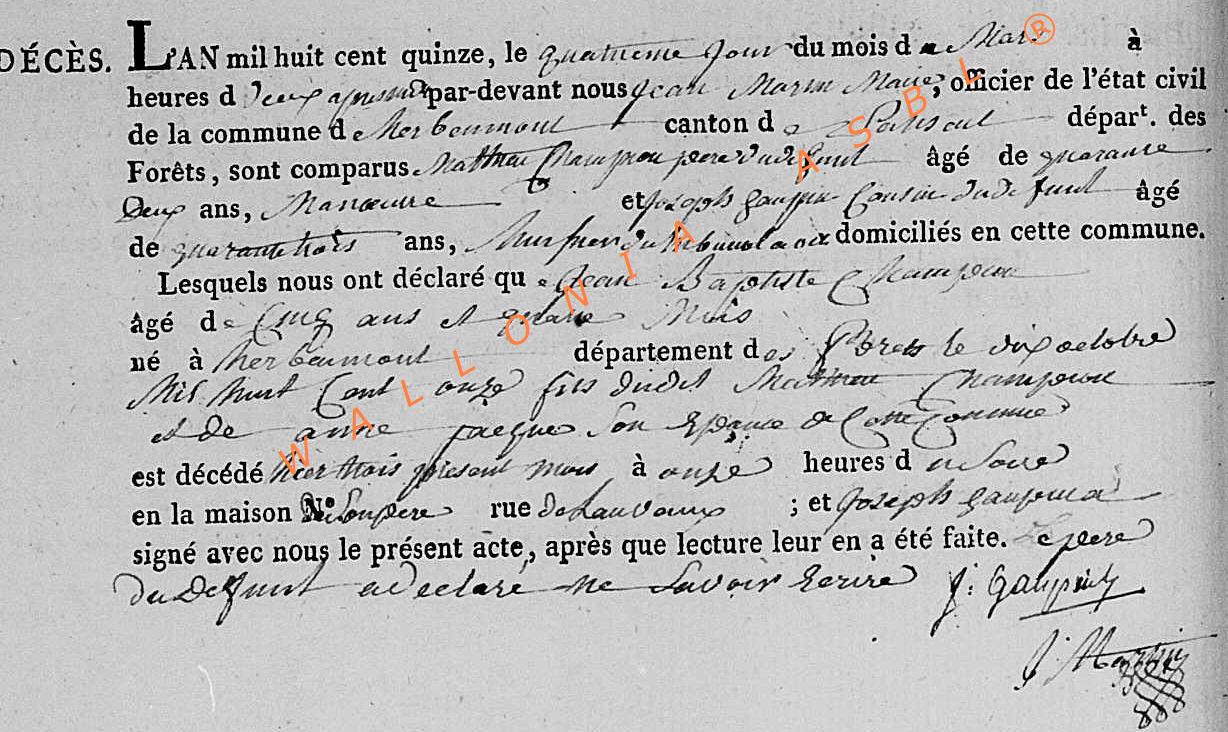 DÉCÈS. L'AN mil huit cent quinze, le quatrieme jour du mois de Mars à
heures d deux apres midi par-devant nous Jean Martin Maire, officier de l'état civil
de la commune d herbeumont canton de Paliseul départ. des
Forêts, sont comparus Mathieu Champion pere du defunt âgé de quarante
Deux ans, Manoeuvre et Joseph Gaupin Cousin du defunt âgé
de quarante trois ans, du tribunal domiciliés en cette commune.
Lesquels nous ont déclaré que Jean Baptiste Champion
âgé de Cinq ans et quatre Mois
né à herbeumont département des forets le dix octobre
Mil huit Cent onze fils dudit Mathieu Champion
et de anne jacque Son Epouse de Cette Commune
est décédé hier trois present mois à onze heures d u Soir
en la maison No de Son pere rue de Lauvaux ; et Joseph
signé avec nous le présent acte, après que lecture leur en a été faite. Le pere
du Defunt a declaré ne Savoir Ecrire J: Gaupin
J: Martin
WALLONIA ASBL ®